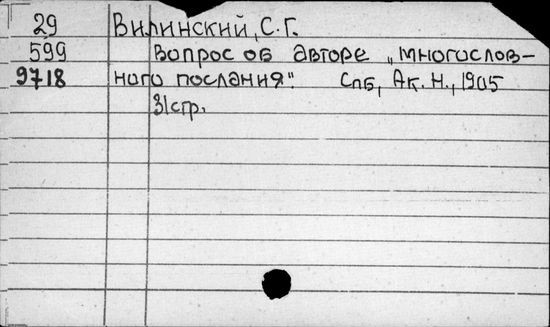 29 Вилинский, С.Г.
599 Вопрос об авторе „многослов-
9718 ного послания". Спб, Ак. Н., 1905
31стр.